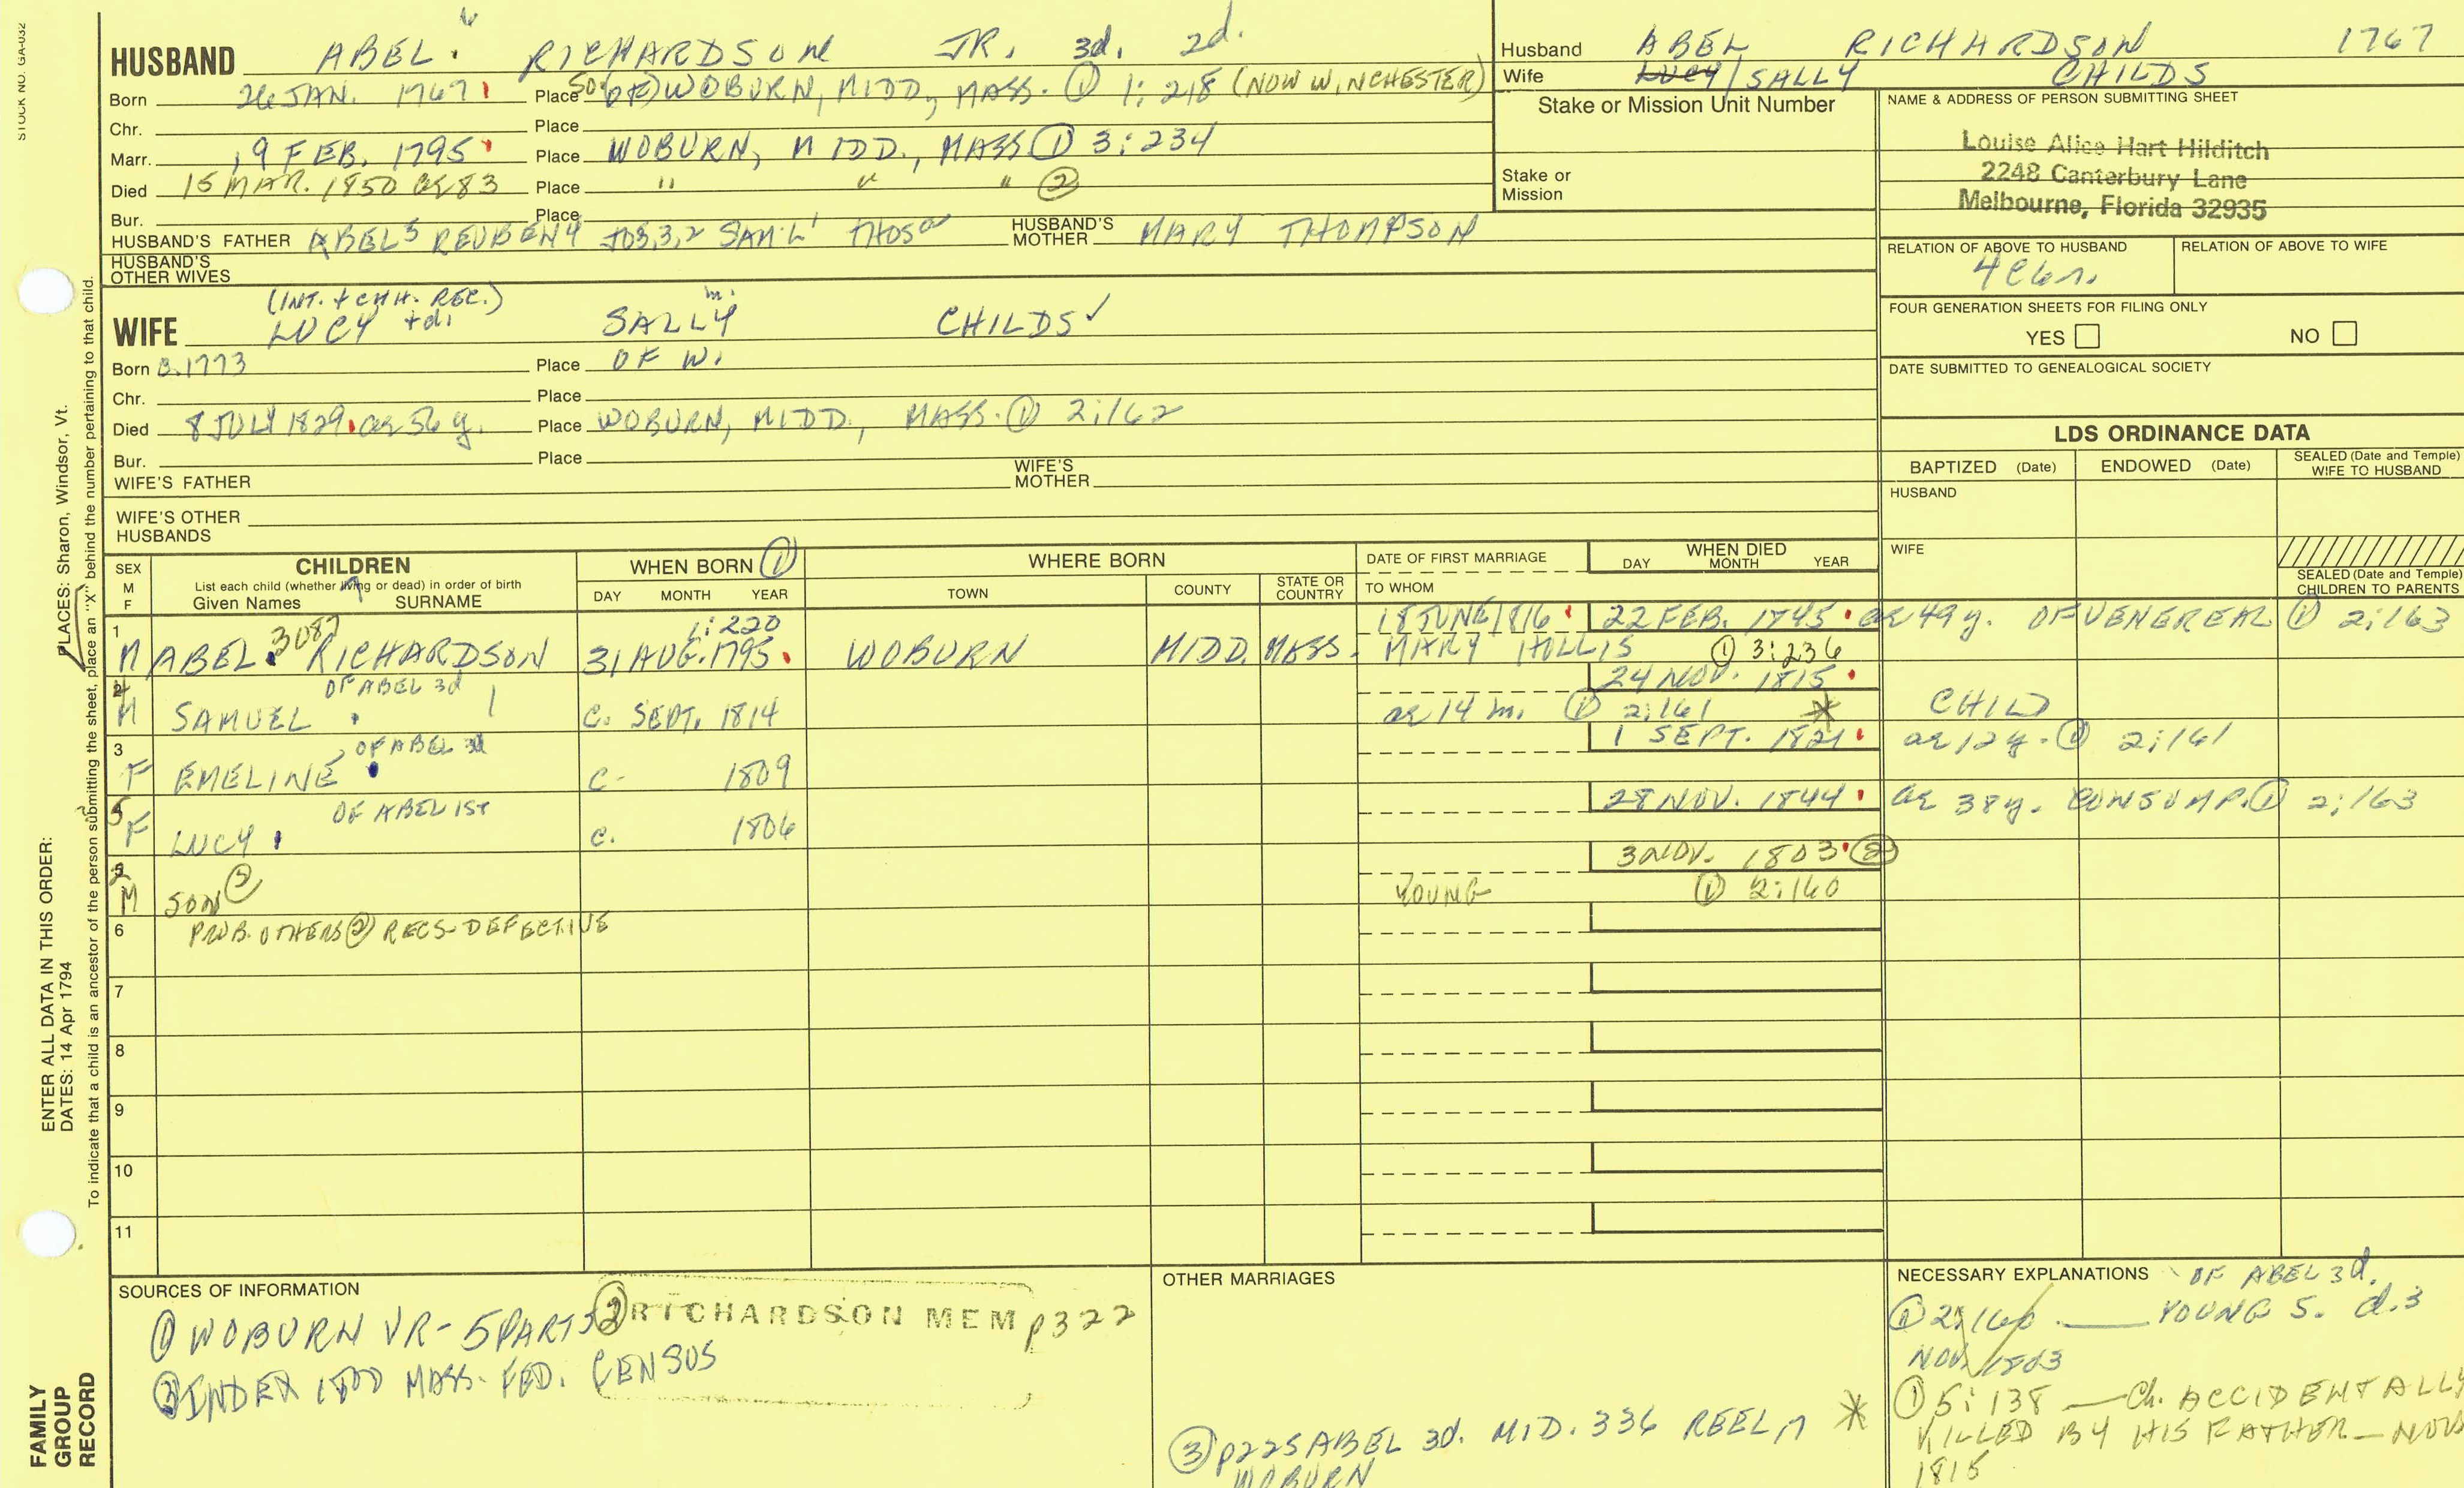 STOCK NO. GA-032
HUSBAND ABEL 6 RICHARDSON JR. 3d. 2d.
Born 26 JAN. 1767 Place SO. (OF) WOBURN, MIDD., MASS. ① 1:218 (NOW WINCHESTER)
Chr. Place
Marr. 19 FEB. 1795 Place WOBURN, MIDD., MASS ① 3:234
Died 15 MAR. 1850 ae 83 Place " " " ②
Bur. Place
HUSBAND'S FATHER ABEL 5 REUBEN 4 JOS. 3, 2 SAM'L 1 THOS HUSBAND'S MOTHER MARY THOMPSON
HUSBAND'S OTHER WIVES
(INT. + CHH. REC.) m.
WIFE LUCY + d. SALLY CHILDS ✓
Born 1773 Place OF W.
Chr. Place
Died 8 JULY 1829 ae 56 y. Place WOBURN, MIDD., MASS. ① 2:162
Bur. Place
WIFE'S FATHER WIFE'S MOTHER
WIFE'S OTHER HUSBANDS
Husband ABEL RICHARDSON 1767
Wife LUCY / SALLY CHILDS
Stake or Mission Unit Number
Stake or Mission
NAME & ADDRESS OF PERSON SUBMITTING SHEET
Louise Alice Hart Hilditch
2248 Canterbury Lane
Melbourne, Florida 32935
RELATION OF ABOVE TO HUSBAND RELATION OF ABOVE TO WIFE
FOUR GENERATION SHEETS FOR FILING ONLY
YES NO
DATE SUBMITTED TO GENEALOGICAL SOCIETY
LDS ORDINANCE DATA
BAPTIZED (Date) ENDOWED (Date) SEALED (Date and Temple) WIFE TO HUSBAND
HUSBAND
WIFE
SEALED (Date and Temple) CHILDREN TO PARENTS
SEX M F
CHILDREN
List each child (whether living or dead) in order of birth
Given Names SURNAME
WHEN BORN ①
DAY MONTH YEAR
WHERE BORN
TOWN COUNTY STATE OR COUNTRY
DATE OF FIRST MARRIAGE
TO WHOM
WHEN DIED
DAY MONTH YEAR
3087 1:220 18 JUNE 1816 22 FEB. 1745 ae 49 y. OF VENEREAL ① 2:163
1 M ABEL RICHARDSON 31 AUG. 1795 WOBURN MIDD. MASS. MARY HILLIS ① 3:236
OF ABEL 3d 24 NOV. 1815
M SAMUEL C. SEPT. 1814 ae 14 m. ① 2:161 * CHILD
3 OF ABEL 3d 1 SEPT. 1821 ae 12 y. ① 2:161
F EMELINE C. 1809
OF ABEL 1st 28 NOV. 1844 ae 38 y. CONSUMP. ① 2:163
F LUCY C. 1806
3 NOV. 1803 ②
M SON ② YOUNG ① 2:160
6 PROB. OTHERS ② RECS. DEFECTIVE
7
8
9
10
11
SOURCES OF INFORMATION
① WOBURN VR - 5 PARTS ② RICHARDSON MEM p322
③ INDEX 1800 MASS. FED. CENSUS
OTHER MARRIAGES
③ p225 ABEL 3d. MID. 336 REEL
WOBURN
NECESSARY EXPLANATIONS OF ABEL 3d.
① 2:160 YOUNG S. d. 3
NOV. 1803
* ① 5:138 — Ch. ACCIDENTALLY
KILLED BY HIS FATHER — NOV
1815
ENTER ALL DATA IN THIS ORDER:
DATES: 14 Apr 1794
PLACES: Sharon, Windsor, Vt.
To indicate that a child is an ancestor of the person submitting the sheet, place an "X" behind the number pertaining to that child.
FAMILY
GROUP
RECORD